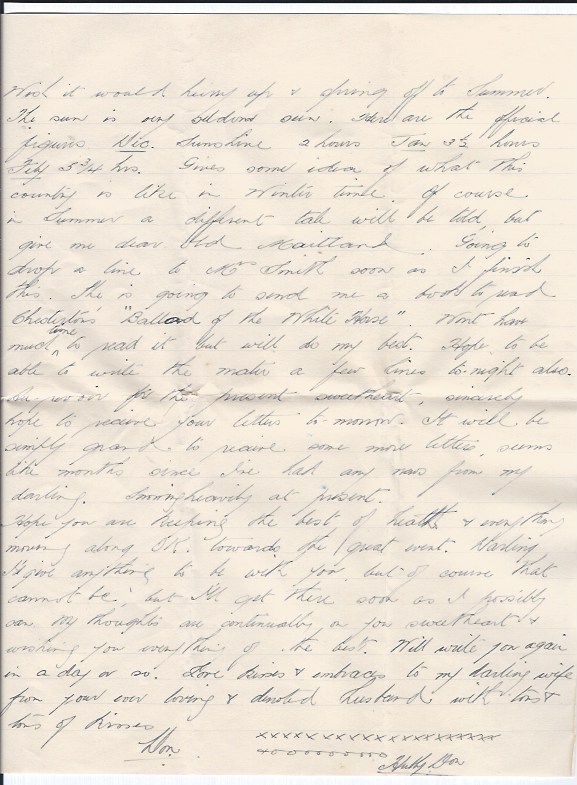 Wish it would hurry up & spring off to Summer.
The sun is very seldom seen. Here are the official
figures Dec. Sunshine 2 hours Jan 3½ hours
Feby 5 3/4 hrs. Gives some idea of what this
country is like in Winter time. Of course
in Summer a different tale will be told, but
give me dear old Maitland. Going to
drop a line to Mrs Smith soon as I finish
this. She is going to send me a book to read
Chesterton's "Ballad of the White Horse". Wont have
much time to read it but will do my best. Hope to be
able to write the mater a few lines to-night also.
Au revoir for the present sweetheart, sincerely
hope to receive your letters to-morrow. It will be
simply grand to receive some more letters, seems
like months since I've had any news from my
darling. Snowing heavily at present.
Hope you are keeping the best of health & everything
moving along OK. towards the great event. Darling
I'd give anything to be with you but of course that
cannot be, but I'll get there soon as I possibly
can. My thoughts are continually on you sweetheart &
wishing you everything of the best. Will write you again
in a day or so. Love kisses & embraces to my darling wife
from your ever loving & devoted husband with tons &
tons of kisses
Don. xxxxxxxxxxxxxxxxxxxx
Hubby Don